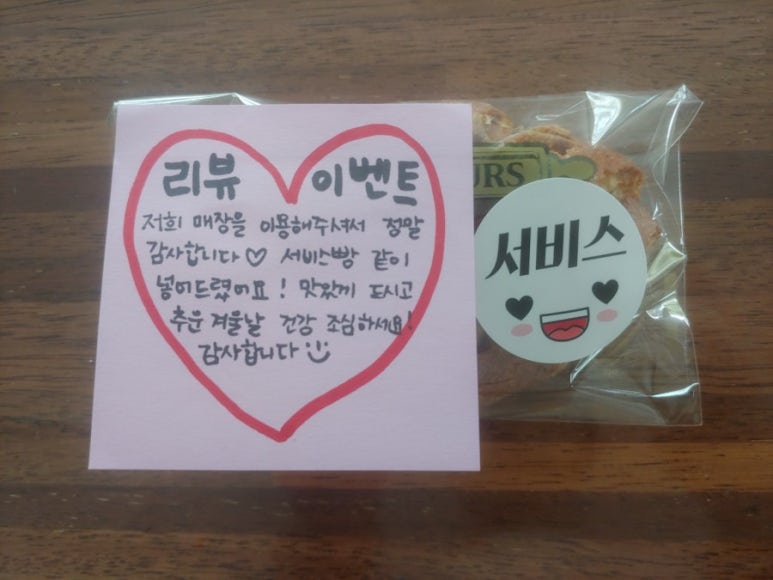 리뷰 이벤트
저희 매장을 이용해주셔서 정말
감사합니다♡ 서비스빵 같이
넣어드렸어요! 맛있께 드시고
추운 겨울날 건강 조심하세요!
감사합니다
URS
서비스